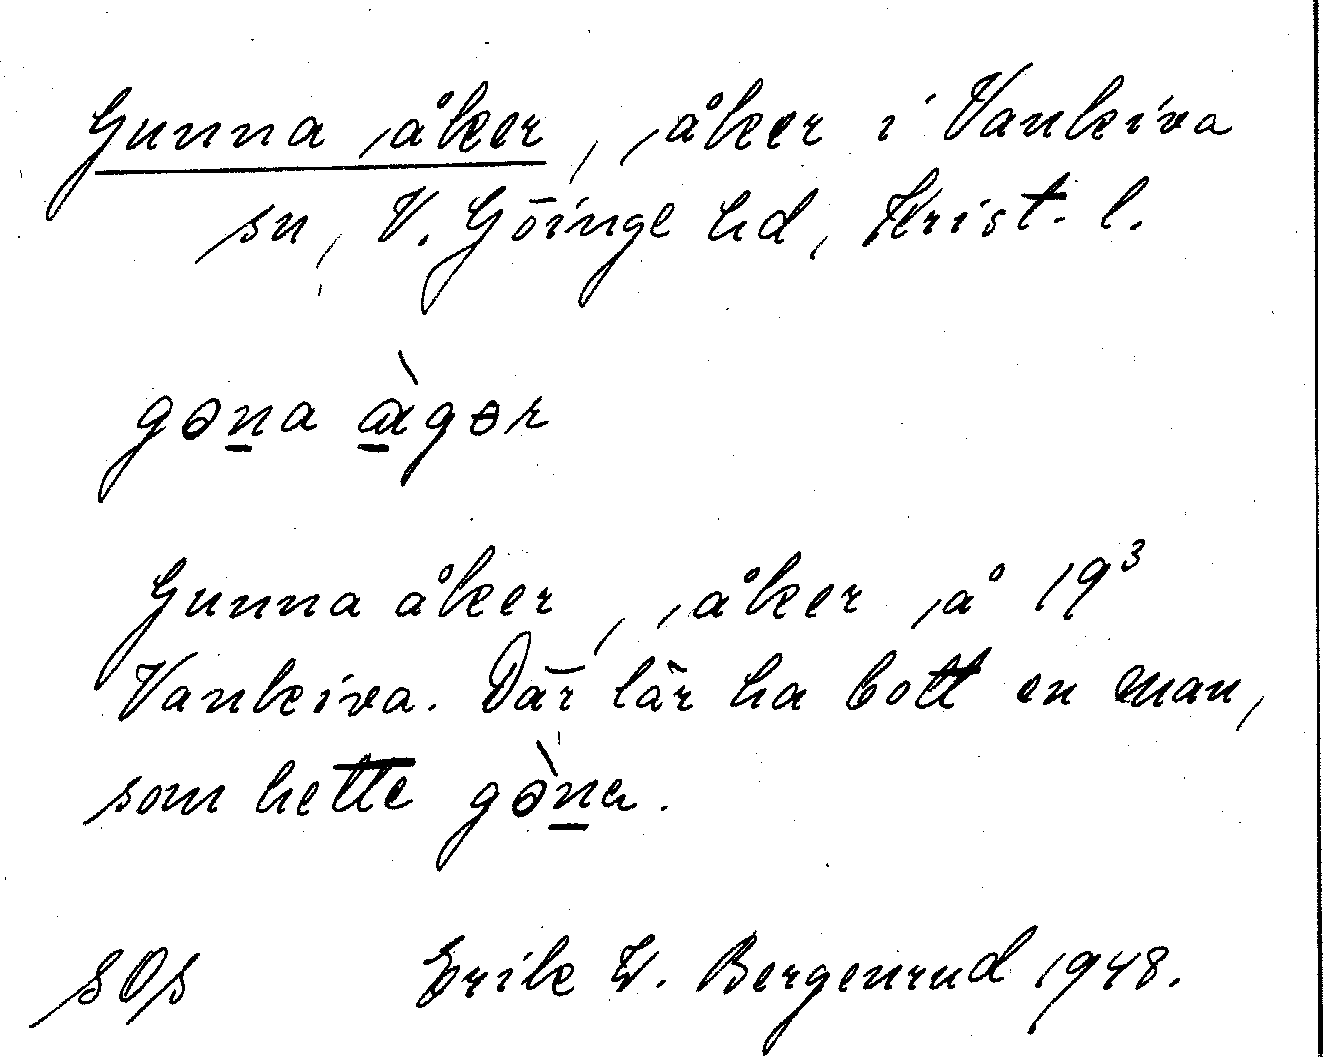 Gunna åker, åker i Vankiva
sn, V. Göinge hd, Krist. l.
gəna àgər
Gunna åker, åker å 19³
Vankiva. Där lär ha bott en man,
som hette gə̀na.
SOS Erik W. Bergenrud 1948.